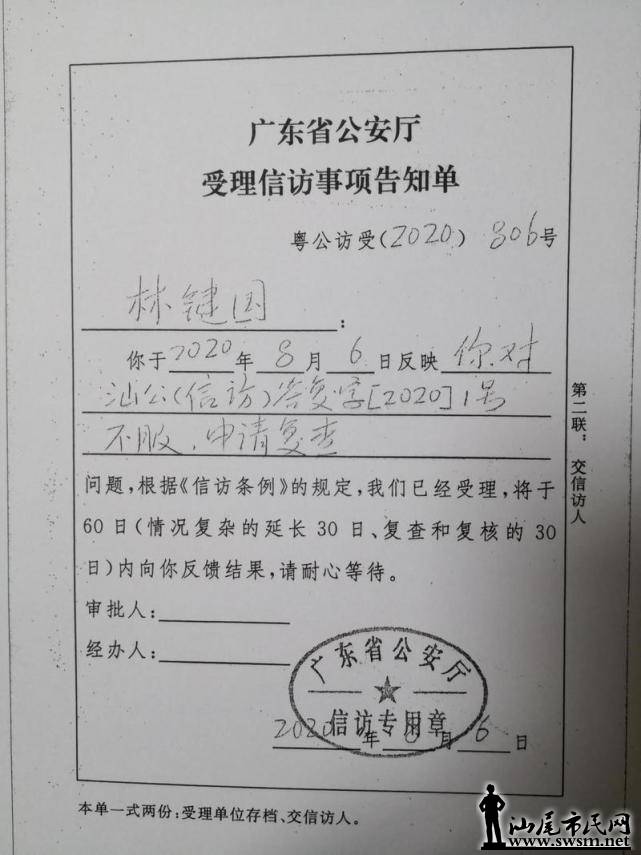 广东省公安厅
受理信访事项告知单
粤公访受(2020) 806号
林键国:
你于2020年8月6日反映 你对
汕公(信访)答复字[2020]1号
不服、申请复查
问题,根据《信访条例》的规定,我们已经受理,将于
60日(情况复杂的延长30日、复查和复核的30
日)内向你反馈结果,请耐心等待。
审批人:
经办人:
广东省公安厅
信访专用章
2020年8月6日
第二联: 交信访人
本单一式两份:受理单位存档、交信访人。
汕尾市民网
www.swsm.net